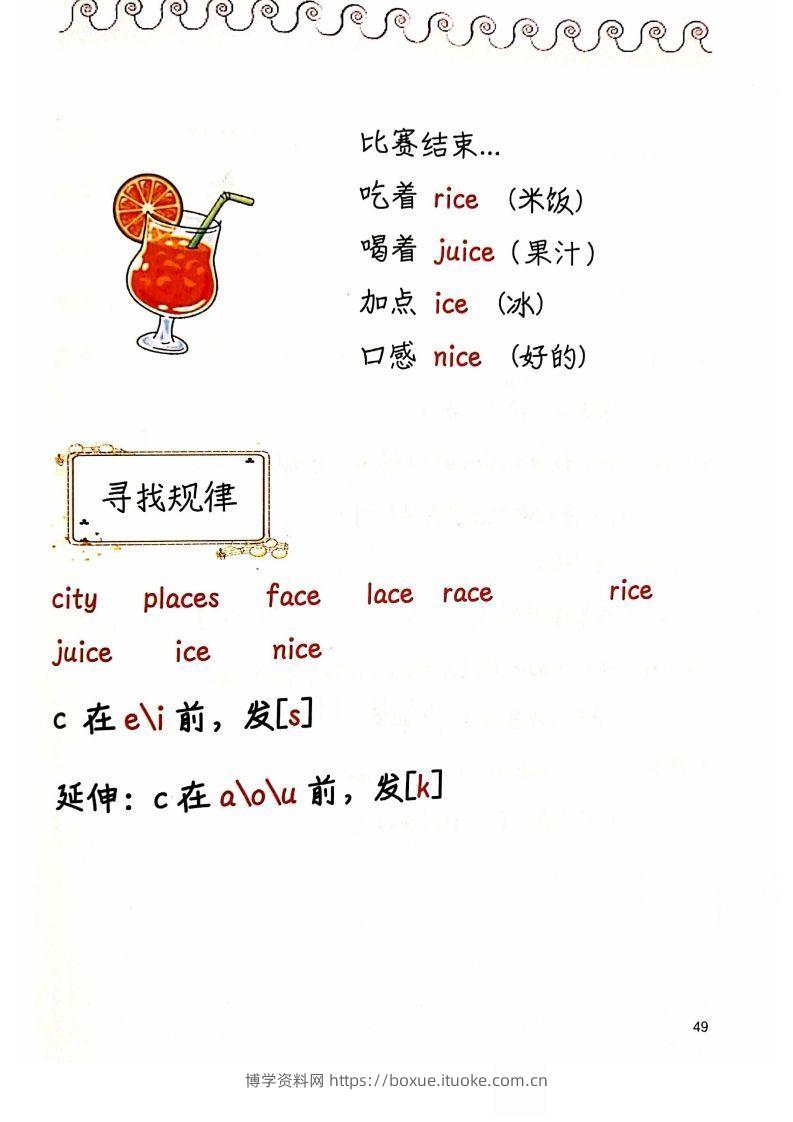 比赛结束...
吃着 rice （米饭）
喝着 juice （果汁）
加点 ice （冰）
口感 nice （好的）
寻找规律
city places face lace race rice
juice ice nice
c 在 e\i 前，发[s]
延伸：c 在 a\o\u 前，发[k]
49
博学资料网 https://boxue.ituoke.com.cn